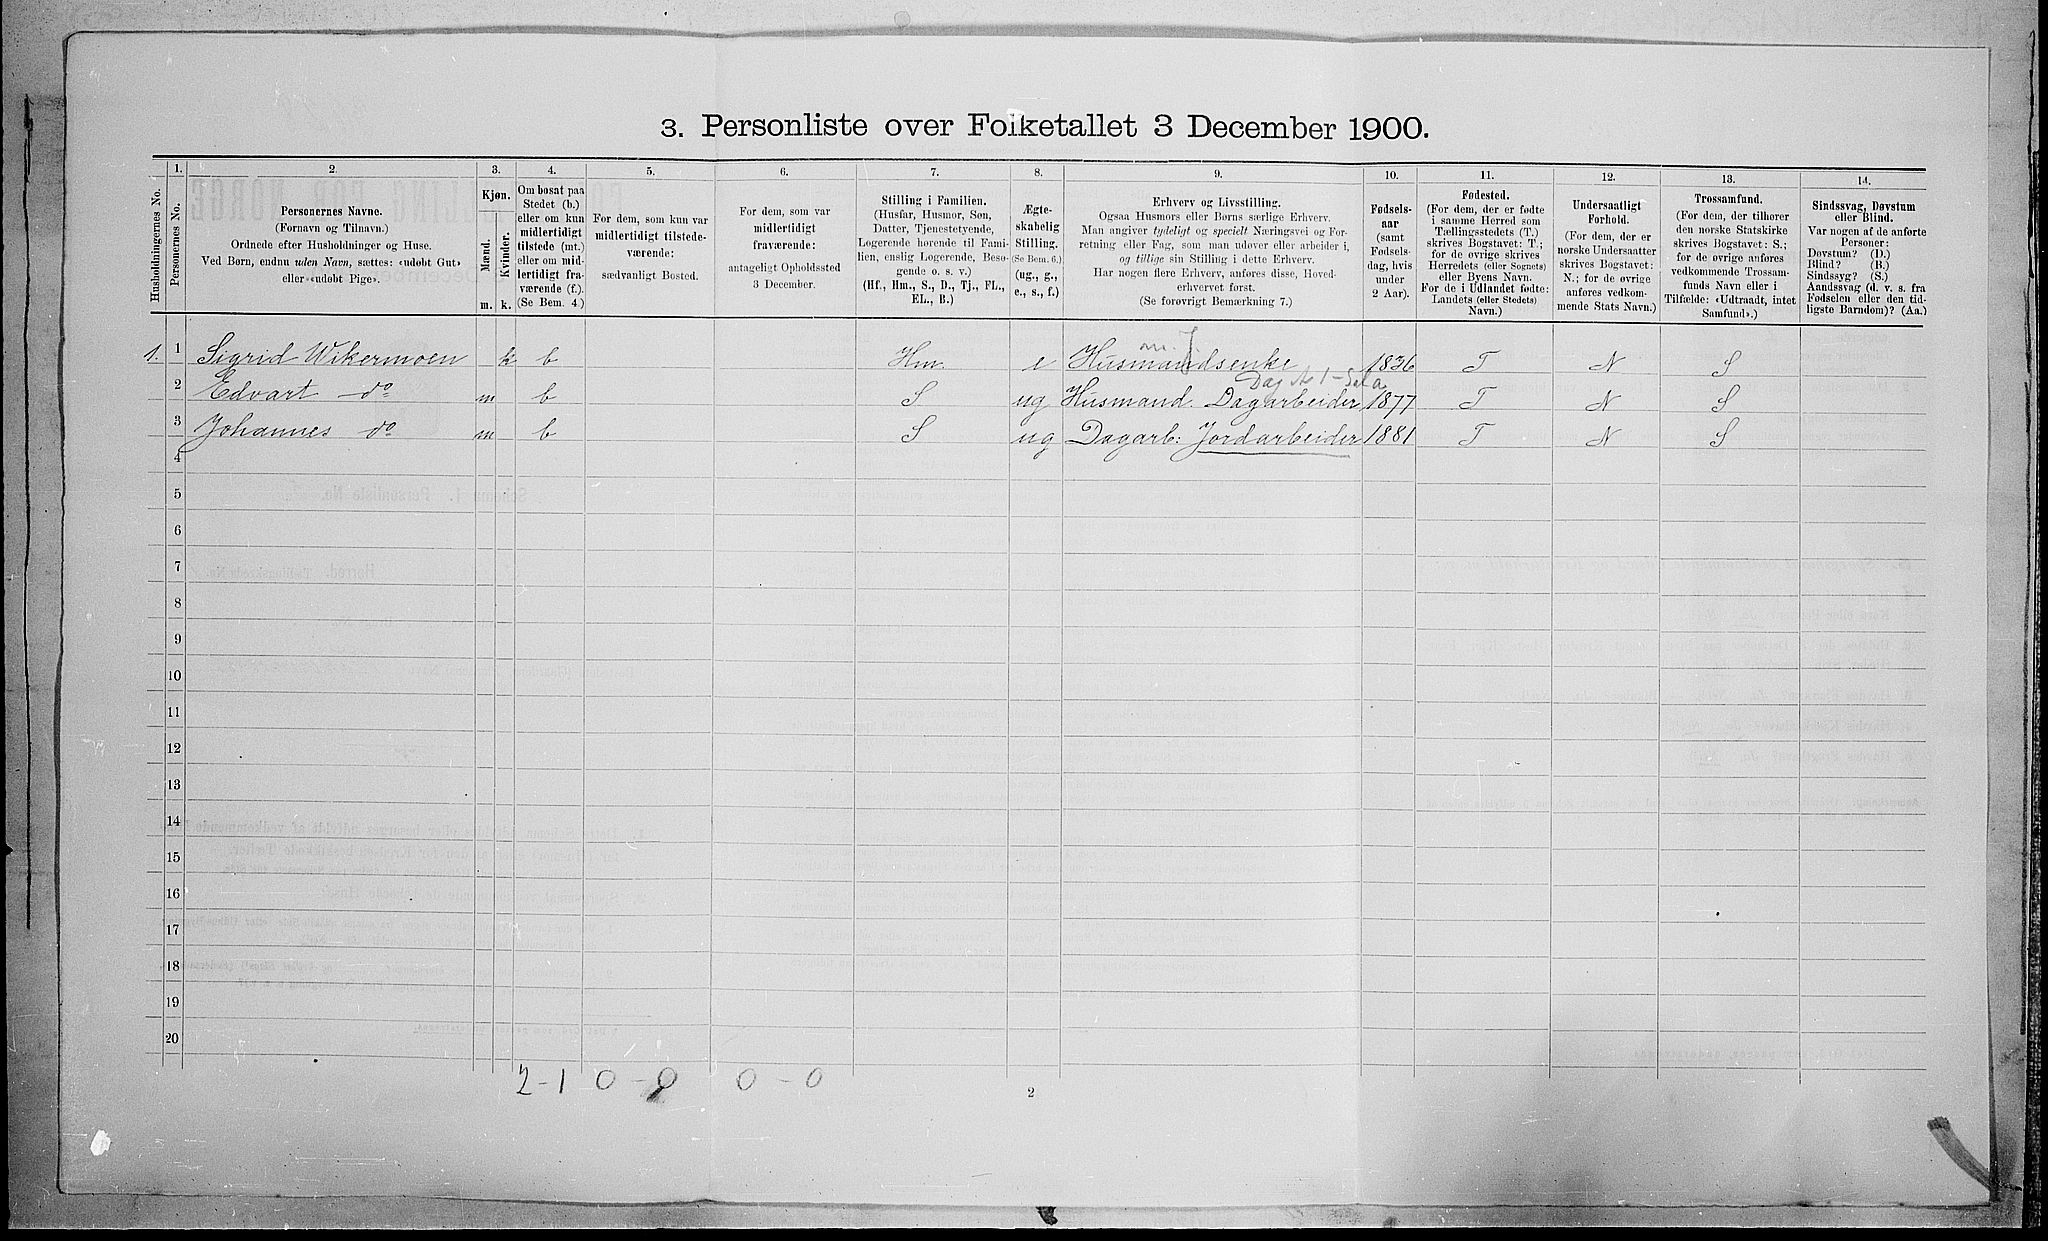 3. Personliste over Folketallet 3 December 1900.
Husholdningernes No.
1.
Personernes No.
2.
Personernes Navne.
(Fornavn og Tilnavn.)
Ordnede efter Husholdninger og Huse.
Ved Børn, endnu uden Navn, sættes: «udøbt Gut»
eller «udøbt Pige».
3.
Kjøn.
Mænd.
Kvinder.
m. k.
4.
Om bosat paa
Stedet (b.)
eller om kun
midlertidigt
tilstede (mt.)
eller om mid-
lertidigt fra-
værende (f.).
(Se Bem. 4.)
5.
For dem, som kun var
midlertidigt tilstede-
værende:
sædvanligt Bosted.
6.
For dem, som var
midlertidigt
fraværende:
antageligt Opholdssted
3 December.
7.
Stilling i Familien.
(Husfar, Husmor, Søn,
Datter, Tjenestetyende,
Logerende hørende til Fami-
lien, enslig Logerende, Besø-
gende o. s. v.)
(Hf., Hm., S., D., Tj., FL.,
EL., B.)
8.
Ægte-
skabelig
Stilling.
(Se Bem. 6.)
(ug., g.,
e., s., f.)
9.
Erhverv og Livsstilling.
Ogsaa Husmors eller Børns særlige Erhverv.
Man angiver tydeligt og specielt Næringsvei og For-
retning eller Fag, som man udøver eller arbeider i,
og tillige sin Stilling i dette Erhverv.
Har nogen flere Erhverv, anføres disse, Hoved-
erhvervet først.
(Se forøvrigt Bemærkning 7.)
10.
Fødsels-
aar
(samt
Fødsels-
dag, hvis
under
2 Aar).
11.
Fødested.
(For dem, der er fødte
i samme Herred som
Tællingsstedets (T.)
skrives Bogstavet: T.;
for de øvrige skrives
Herredets (eller Sognets)
eller Byens Navn.
For de i Udlandet fødte:
Landets (eller Stedets)
Navn.)
12.
Undersaatligt
Forhold.
(For dem, der er
norske Undersaatter
skrives Bogstavet:
N.; for de øvrige
anføres vedkom-
mende Stats Navn.)
13.
Trossamfund.
(For dem, der tilhører
den norske Statskirke
skrives Bogstavet: S.;
for de øvrige anføres
vedkommende Trossam-
funds Navn eller i
Tilfælde: «Udtraadt, intet
Samfund».)
14.
Sindssvag, Døvstum
eller Blind.
Var nogen af de anførte
Personer:
Døvstum? (D.)
Blind? (B.)
Sindssyg? (S.)
Aandssvag (d. v. s. fra
Fødselen eller den tid-
ligste Barndom)? (Aa.)
1. 1 Sigrid Wikermoen k b Hm. e Husmandsenke 1836 T N S
2 Edvart do m b S ug Husmand. Dagarbeider 1877 T N S
3 Johannes do m b S ug Dagarb: Jordarbeider 1881 T N S
4
5
6
7
8
9
10
11
12
13
14
15
16
17
18
19
20
2-1 0-0 0-0
2